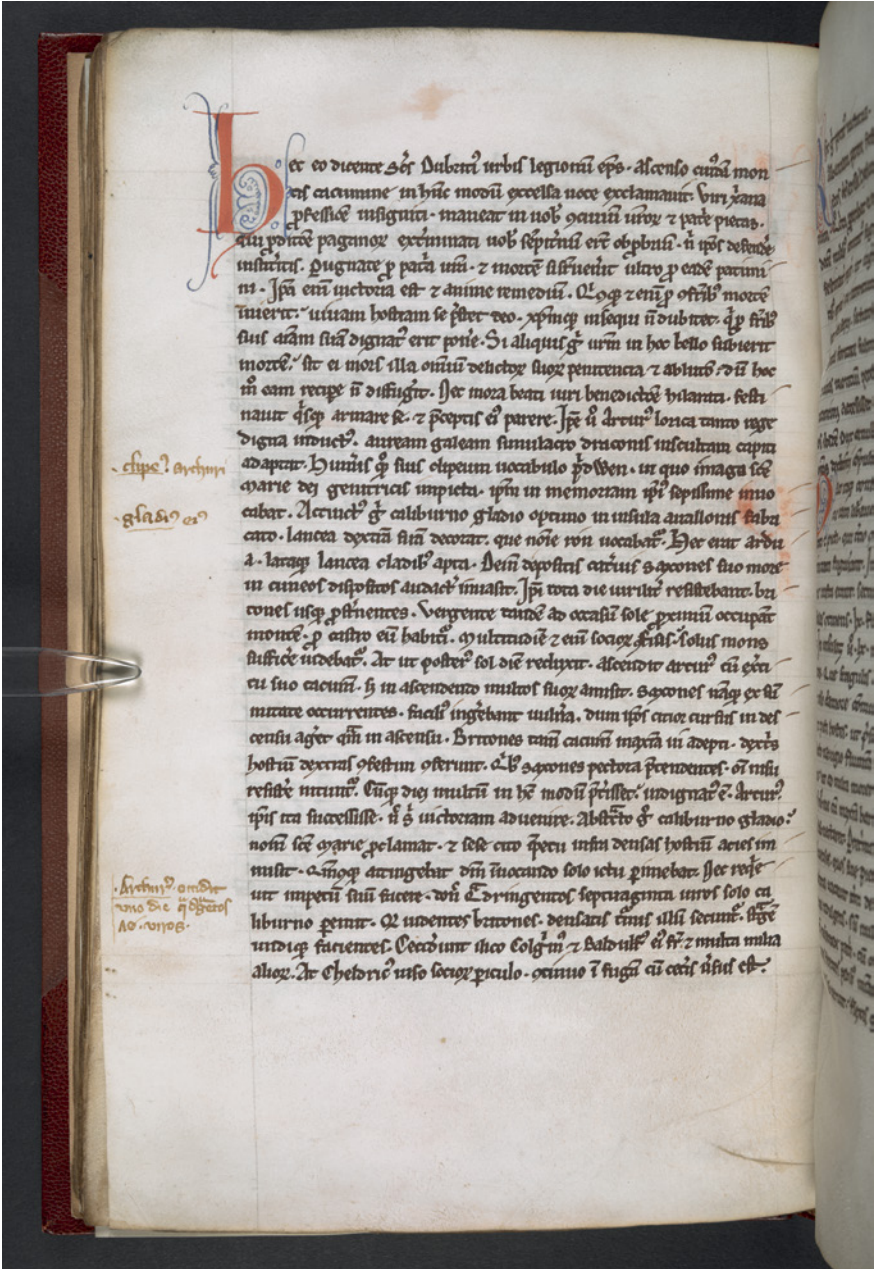 Hec eo dicente scs Dubriciꝰ urbis legionū eps · ascenso cuiꝰdā mon
tis cacumine in hūc modū excelsa uoce exclamauit. Viri xana
ꝓfessiōe insigniti · maneat in uob ꝯciuiū uror ⁊ patrie pietas ·
qui ꝓditōe paganor exͭminati uob sēpitnū erit obꝓbriū · n̄ ipos defendre
institͥtis. Pugnate ꝓ patria ura · ⁊ mortē si sꝑuenit ultro ꝓ eadē patimi
ni · Ipa eni uictoria est ⁊ anime remediū. Qͥcq ⁊ eni ꝓ ꝯfrib mortē
inierit · uiuam hostiam se prestet deo · xpmq insequi n̄ dubitet · qͥ ꝓ frib
suis aīam suā dignatꝰ erit ponre. Si aliquis gͦ urm in hoc bello subierit
mortē · sit ei mors illa omiū delictor suor penitencia ⁊ ablutio · dū hoc
mͦ eam recipe n̄ diffugͥt. Nec mora beati uiri benedictōe hilarati · festi
nauit qͥsq armare se · ⁊ pceptis eiꝰ parere. Ipe u Arturꝰ lorica tanto rege
digna indutꝰ · auream galeam simulacro draconis inscultam capiti
adaptat. Humis qͦ suis clipeum uocabulo pͥdwen · in quo imago sce
Marie dei genitricis impicta · ipm in memoriam ipiꝰ sepissime inuo
cabat. Accinctꝰ gͦ caliburno gladio optimo in insula auallonis fabri
cato · lancea dextrā suā decorat · que noīe ron uocabatͬ. Hec erat ardu
a · lataq lancea cladib apta. Dein depositis catiuis saxones suo more
in cuneos dispositos audactͥ inuasit. Ipi tota die uirilit resistebant · bri
tones usq ꝓstnentes. Vergente tandē ad occasū sole proximū occupāt
montē · ꝓ castro eū habitͥ. Multitudīe ⁊ eni socior ꝯfisis · solus mons
sufficͤ uidebatͬ. At ut posterꝰ sol diē reduxit · ascendit arturꝰ cū exͤci
tu suo cacum̄ · sꝫ in ascendendo multos suor amisit. Saxones nāq ex sū
mitate occurrentes · faciliꝰ ingͤbant uulnra · dum ipos citior cursus in des
censu agͤet qm in ascensu. Britones tam̄ cacum̄ maxīa ui adepti · dextͥs
hostiū dextras ꝯfestim ꝯferunt. Qͥb saxones pectora ptendentes · oi nisu
resistͤ nitunt. Cūq diei multū in hc modū ptͥisset · indignatꝰ ē Arturꝰ
ipis ita successisse · n̄ sͥ uictoriam aduenire. Abstcto gͦ caliburno gladio ·
nom̄ sce Marie ꝓclamat · ⁊ sese cito ipetu infra densas hostiū acies im
misit · Quīoq attingebat dm̄ inuocando solo ictu ꝑimebat. Nec reqͥe
uit impetū suū facere · don̄ Qͣdringentos septuaginta uiros solo ca
liburno ꝑemit. Qd uidentes britones · densatis tmis illū secunt · stgē
undiq facientes. Ceciderūt ilico Colgͥmꝰ ⁊ Baldulfꝰ eiꝰ fr ⁊ multa milia
alior. At Cheldricꝰ uiso socior ꝑiculo · ꝯtinuo ī fugā cū cetis usus est.
· clipeꝰ archuri
· gladiꝰ eiꝰ
· Arthurꝰ occidit
uno die qͣdgentos
uiros ·